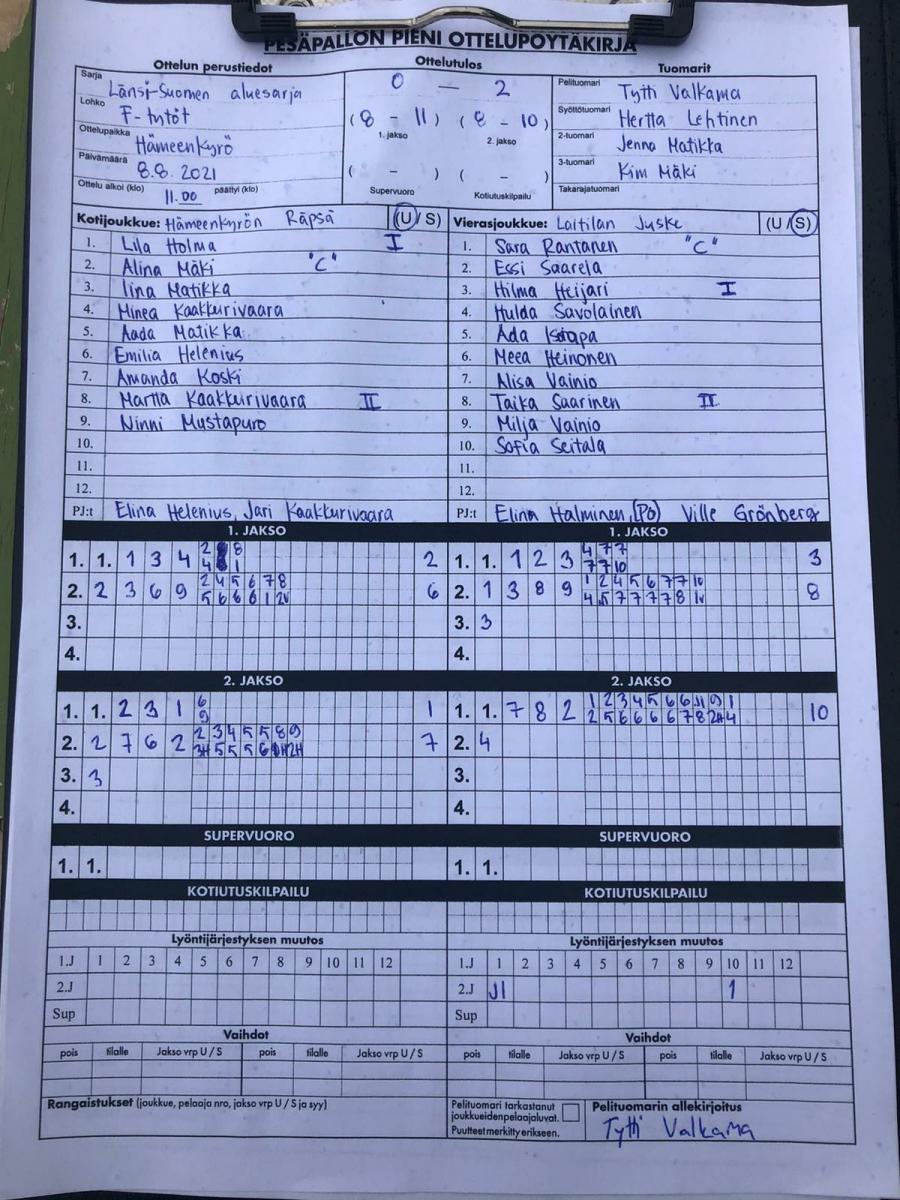 PESÄPALLON PIENI OTTELUPÖYTÄKIRJA
Ottelun perustiedot
Sarja Länsi-Suomen aluesarja
Lohko F-tytöt
Ottelupaikka Hämeenkyrö
Päivämäärä 8.8.2021
Ottelu alkoi (klo) 11.00 päättyi (klo)
Ottelutulos
0 — 2
(8 - 11) (8 - 10)
1. jakso 2. jakso
( - ) ( - )
Supervuoro Kotiutuskilpailu
Tuomarit
Pelituomari Tytti Valkama
Syöttötuomari Hertta Lehtinen
2-tuomari Jenna Matikka
3-tuomari Kim Mäki
Takarajatuomari
Kotijoukkue: Hämeenkyrön Räpsä (U/S)
1. Lila Holma I
2. Alina Mäki "C"
3. Iina Matikka
4. Minea Kaakkurivaara
5. Aada Matikka
6. Emilia Helenius
7. Amanda Koski
8. Martta Kaakkurivaara II
9. Ninni Mustapuro
10.
11.
12.
PJ:t Elina Helenius, Jari Kaakkurivaara
Vierasjoukkue: Laitilan Juske (U/S)
1. Sara Rantanen "C"
2. Essi Saarela
3. Hilma Heijari I
4. Hulda Savolainen
5. Ada
6. Meea Heinonen
7. Alisa Vainio
8. Taika Saarinen II
9. Milja Vainio
10. Sofia Seitala
11.
12.
PJ:t Elina Halminen, (Po) Ville Grönberg
1. JAKSO
1. 1. 1 3 4 2 8 4 1 2
2. 2 3 6 9 2 4 5 6 7 8 6
3.
4.
1. JAKSO
1. 1. 1 2 3 4 7 7 7 7 10 3
2. 1 3 8 9 1 2 4 5 6 7 7 10 8
3. 3
4.
2. JAKSO
1. 1. 2 3 1 6 9 1
2. 2 7 6 2 2 3 4 5 5 8 9 7
3. 3
4.
2. JAKSO
1. 1. 7 8 2 10
2. 4
3.
4.
SUPERVUORO
1. 1.
SUPERVUORO
1. 1.
KOTIUTUSKILPAILU
KOTIUTUSKILPAILU
Lyöntijärjestyksen muutos
1.J 1 2 3 4 5 6 7 8 9 10 11 12
2.J
Sup
Lyöntijärjestyksen muutos
1.J 1 2 3 4 5 6 7 8 9 10 11 12
2.J J1 1
Sup
Vaihdot
pois tilalle Jakso vrp U / S pois tilalle Jakso vrp U / S
Vaihdot
pois tilalle Jakso vrp U / S pois tilalle Jakso vrp U / S
Rangaistukset (joukkue, pelaaja nro, jakso vrp U / S ja syy)
Pelituomari tarkastanut
joukkueidenpelaajaluvat.
Puutteet merkitty erikseen.
Pelituomarin allekirjoitus
Tytti Valkama